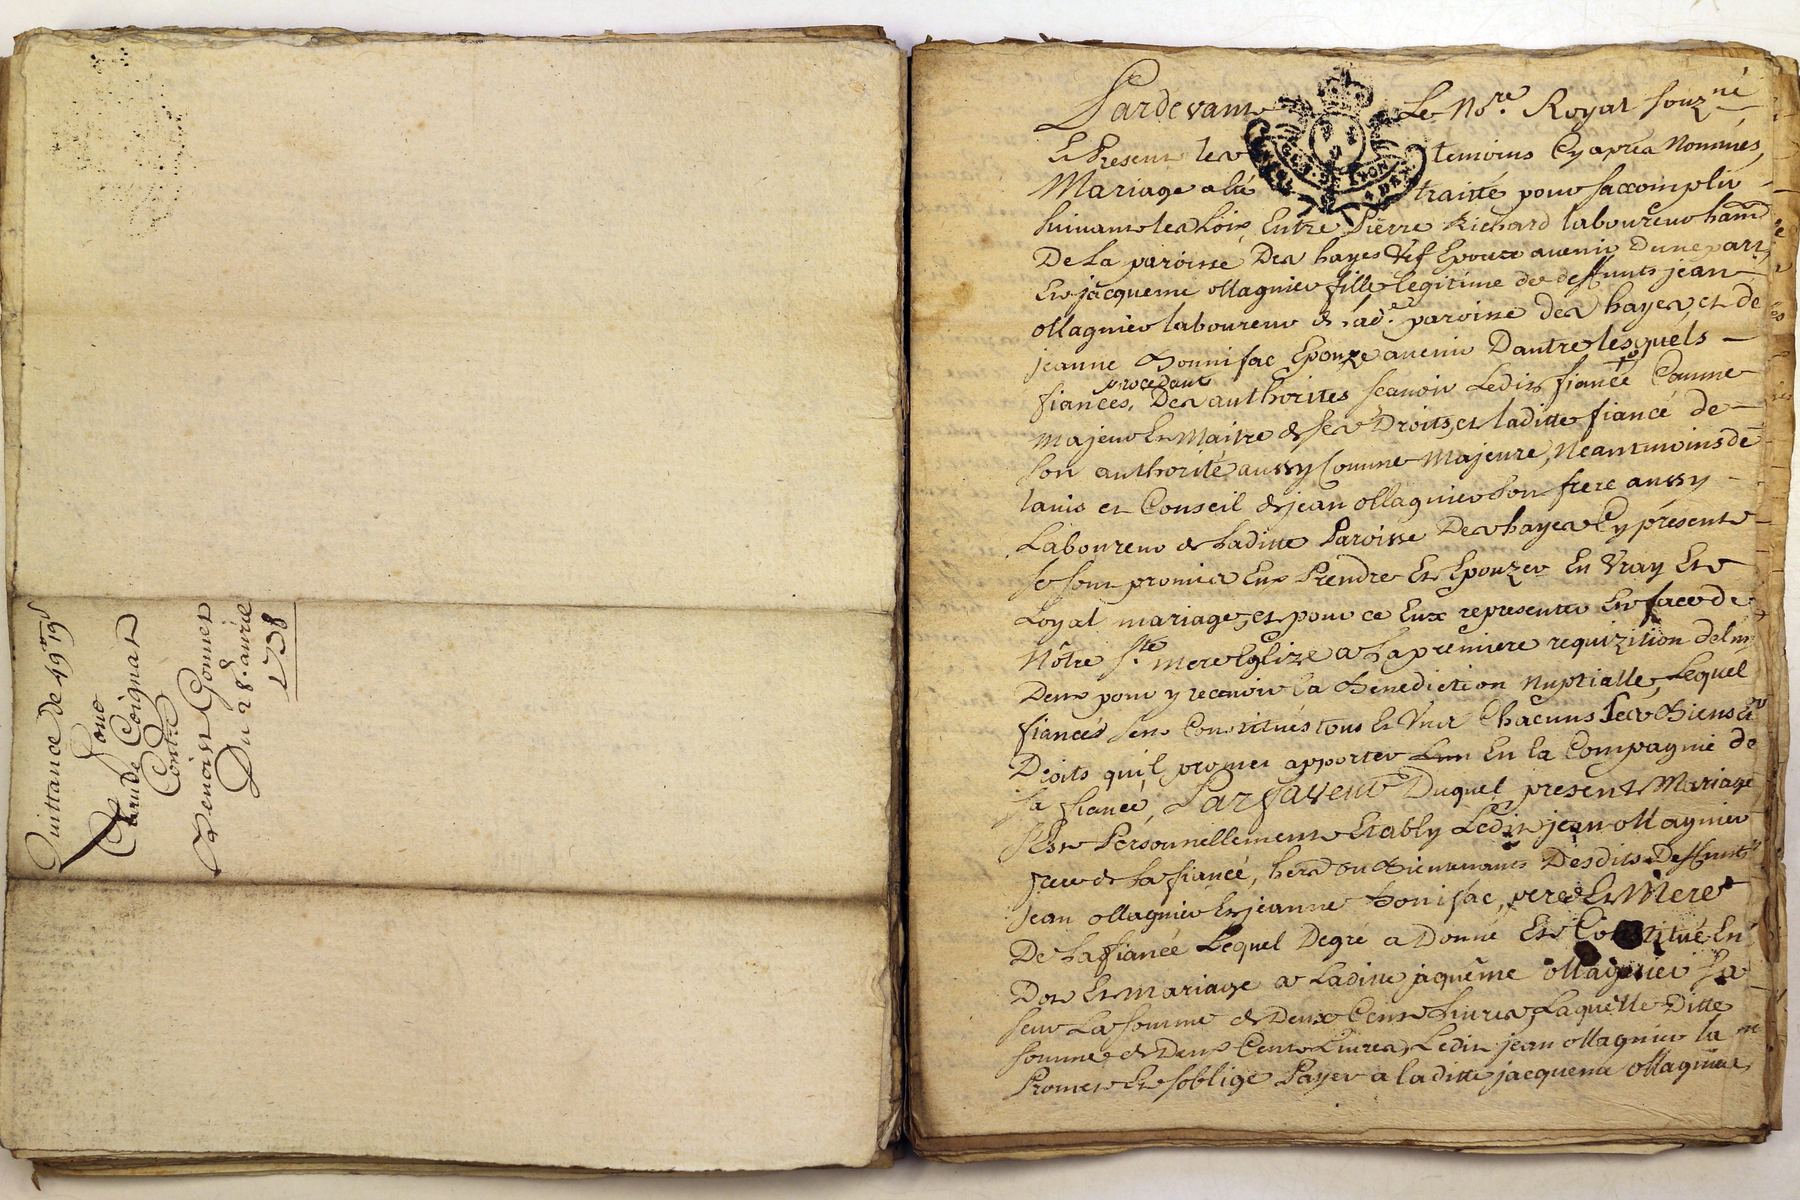 Quittance de 49# 19s
pour
Claude Coignat
Contre
Benoist Gonnet
Du 28e avril
1738
Pardevant Le Nore. Royal souzné
Et Present les temoins Cy apréa Nommés,
Mariage a été traitté pour saccomplir
suivant les Loix Entre Pierre Richard laboureur
De La paroisse Des hayes Epoux avenir Dune part
Et jacqueme ollagnier fille legitime de deffunts jean
ollagnier laboureur de lade. paroisse des hayes, et de
jeanne Bonnifac Epouze avenir Dautre lesquels
fiancés, procedant Des authorités scavoir Ledit fiancé Comme
majeur Et Maitre de ses Droits, et laditte fiancé de
son authorité aussy Comme Majeure, Neantmoins de
lavis et Conseil de jean ollagnier son frere aussy
Laboureur de Laditte Paroisse Des hayes Cy présent
se sont promis Eux Prendre Et Epouzer En Vray Et
Loyal mariage, et pour ce Eux representer En face de
Nôtre Ste. mere Eglize a La premiere requizition de lun
Deux pour y recevoir la Bénediction Nuptialle, Lequel
fiancés Constitués tous Et Chacuns Ses Biens Et
Droits quil promet apporter En la Compagnie de
sa fiancé, Par faveur Duquel present Mariage
sest Personnellement Etably Ledit jean ollagnier
frere de La fiancé, Bientenant Desdits Deffunts
jean ollagnier Et jeanne Bonifac, pere Et Mere
De La fiancée Lequel Degré a Donné Et Constitué En
Dot Et mariage a Laditte jaquême ollagnier Sa
seur La somme de Deux Cent Livres, Laquelle Ditte
somme de Deux Cent Livres, Ledit jean ollagnier la
Promet Et soblige Payer a laditte jacqueme ollagnier